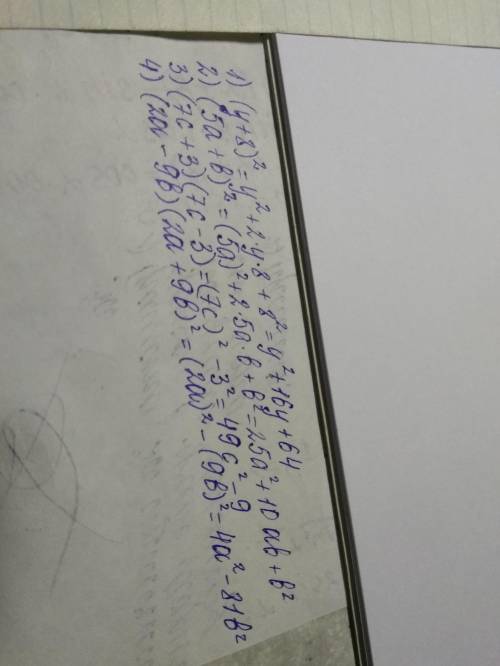 1) (y+8)² = y² + 2·y·8 + 8² = y² + 16y + 64
2) (5a + b)² = (5a)² + 2·5a·b + b² = 25a² + 10ab + b²
3) (7c + 3)(7c - 3) = (7c)² - 3² = 49c² - 9
4) (2a - 9b)(2a + 9b)² = (2a)² - (9b)² = 4a² - 81b²